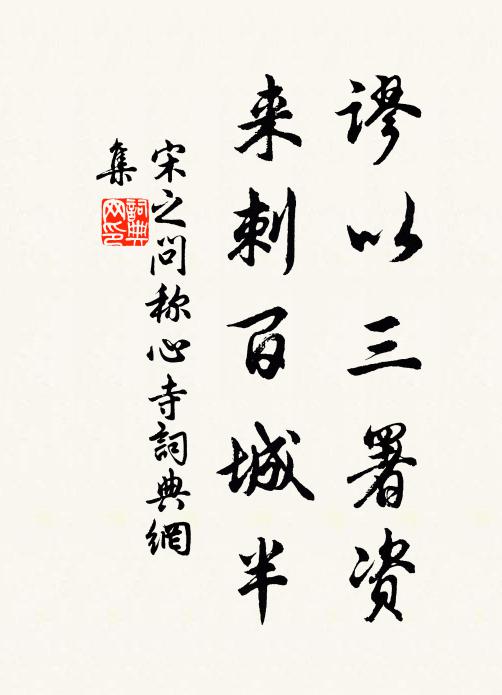 谬以三署资
来刺百城半
宋之问称心寺詞典網
集
詞典
网印